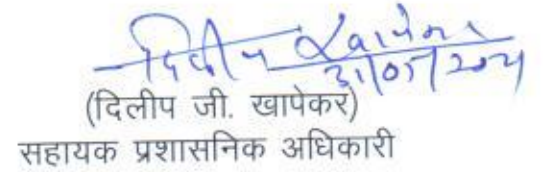 दिलीप खापेकर
31/05/2021
(दिलीप जी. खापेकर)
सहायक प्रशासनिक अधिकारी